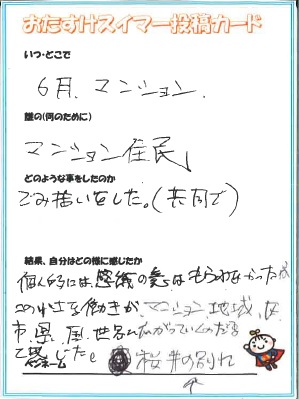 おたすけスイマー投稿カード
いつ・どこで
6月、マンション、
誰の(何のために)
マンション住民
どのような事をしたのか
ごみ拾いをした。(共同で)
結果、自分はどの様に感じたか
個人的には感謝の意はもらわなかったが
この小さな働きが、マンション、地域、区
市、県、国、世界に広がっていくのだな
て感じた。
ペンネーム 桜井の別れ